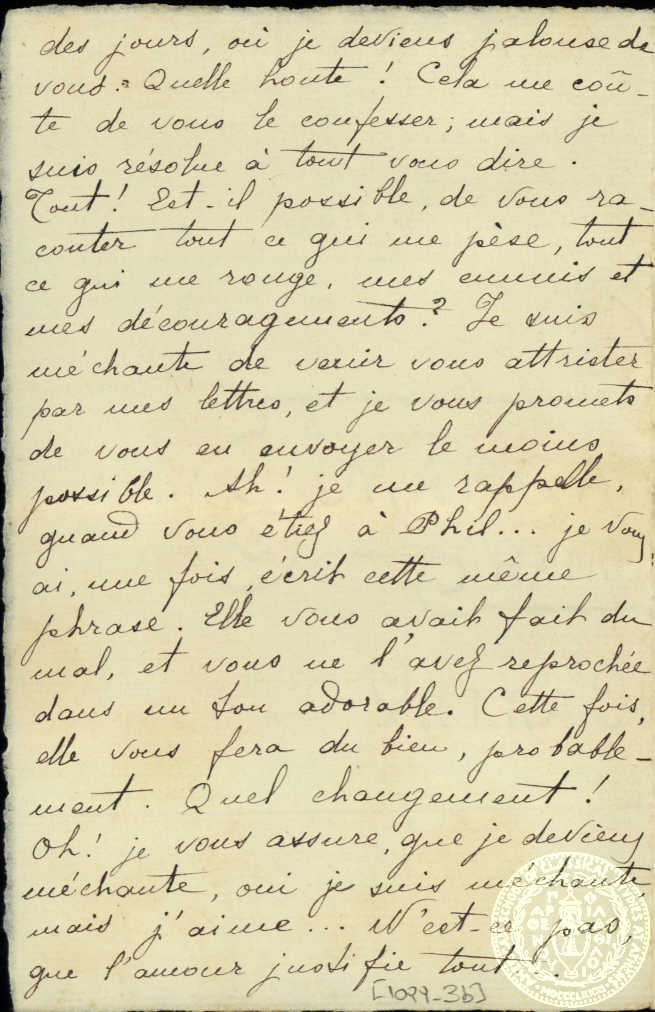 des jours, où je deviens jalouse de
vous. Quelle honte ! Cela me coû-
te de vous le confesser; mais je
suis résolue à tout vous dire.
Tout! Est-il possible, de vous ra-
conter tout ce qui me pèse, tout
ce qui me ronge, mes ennuis et
mes découragements? Je suis
méchante de venir vous attrister
par mes lettres, et je vous promets
de vous en envoyer le moins
possible. Ah! je me rappelle,
quand vous étiez à Phil... je vous
ai, une fois, écrit cette même
phrase. Elle vous avait fait du
mal, et vous me l'avez reprochée
dans un ton adorable. Cette fois,
elle vous fera du bien, probable-
ment. Quel changement!
Oh! je vous assure, que je deviens
méchante, oui je suis méchante,
mais j'aime... N'est-ce pas,
que l'amour justifie tout...
[1099-3b]